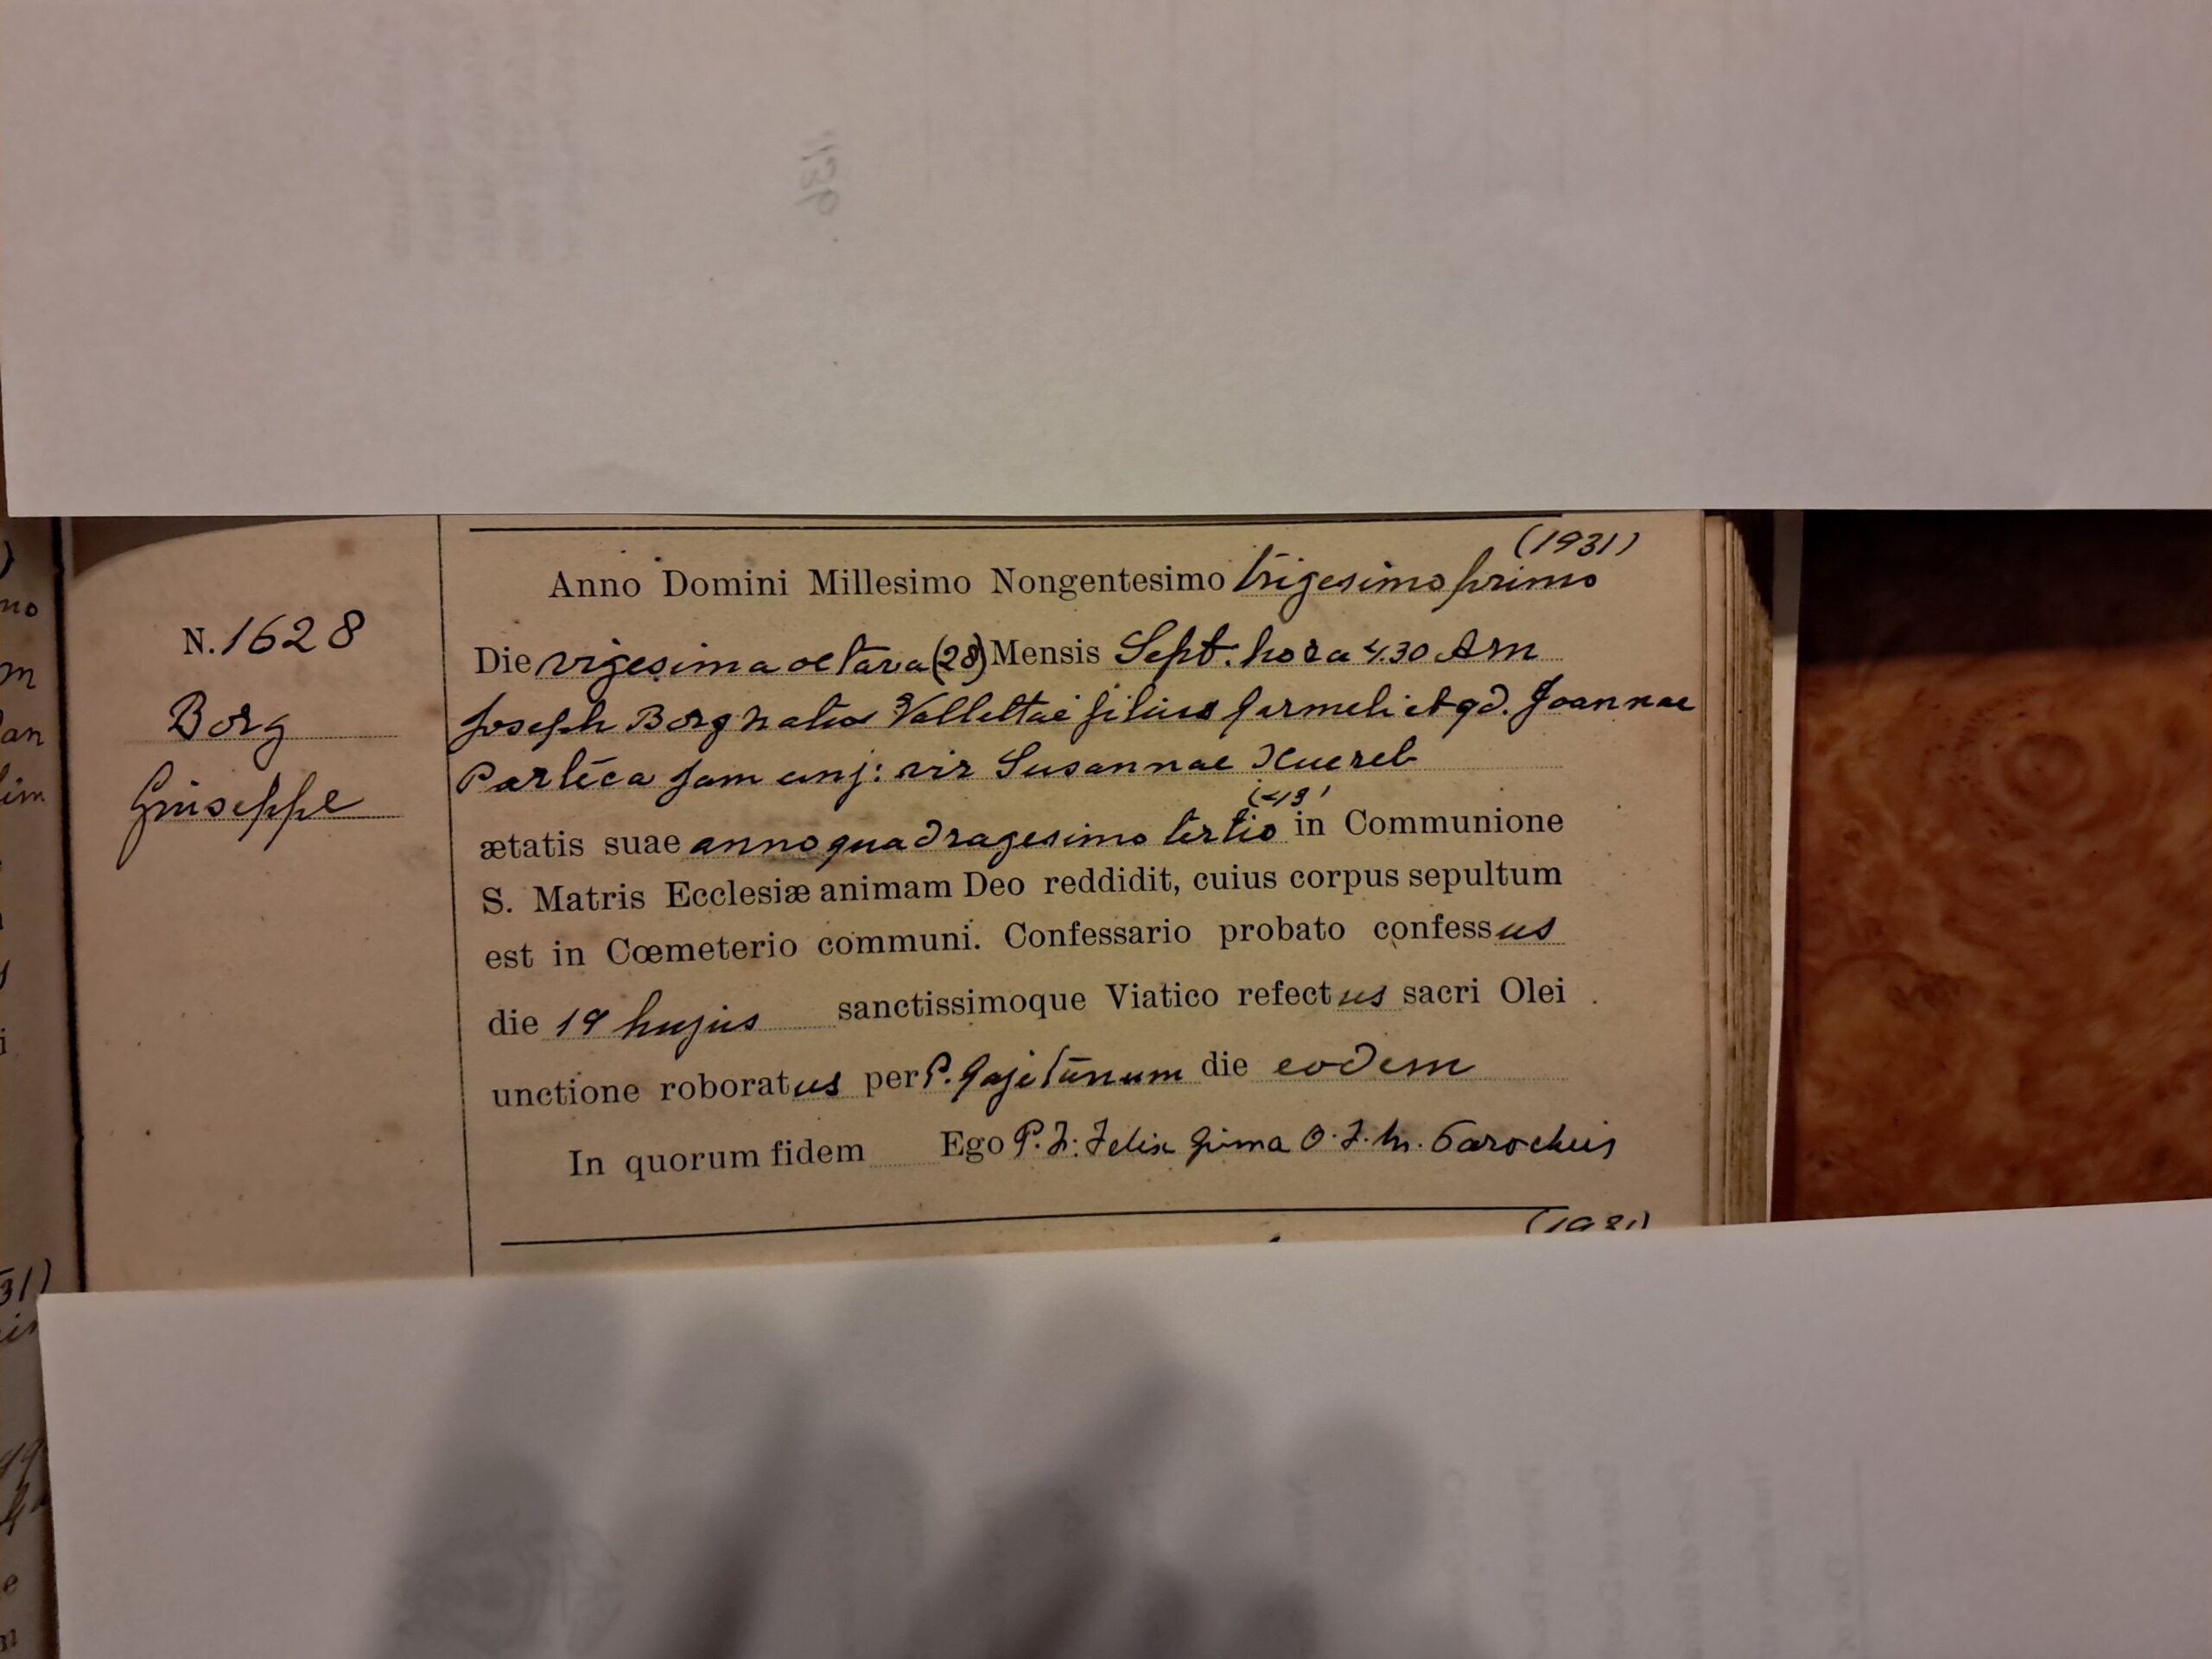 (1931)
Anno Domini Millesimo Nongentesimo trigesimo primo
N. 1628
Borg
Giuseppe
Die vigesima octava (28) Mensis Sept: hora 4.30 Am
Joseph Borg natus Vallettae filius Carmeli et qd. Joannae
jam conj: vir Susannae Xuereb
(43)
ætatis suae anno quadragesimo tertio in Communione
S. Matris Ecclesiæ animam Deo reddidit, cuius corpus sepultum
est in Cœmeterio communi. Confessario probato confessus
die 19 hujus sanctissimoque Viatico refectus sacri Olei
unctione roboratus per P. Gajetanum die eodem
In quorum fidem Ego P. F: Felix Grima O. F. M. Parochus
(1931)